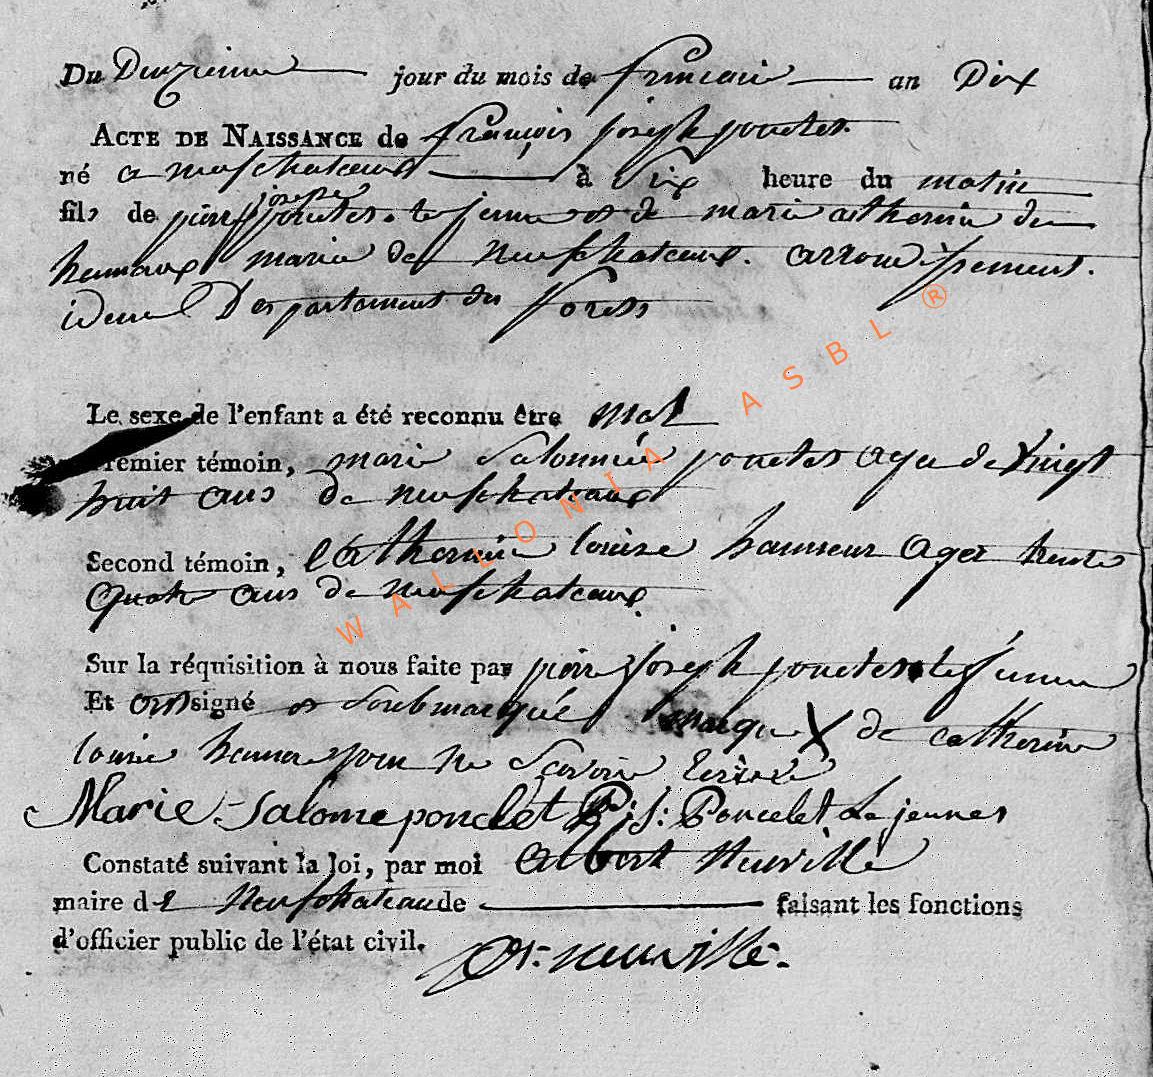 Du Deuzieme jour du mois de frimaire an Dix
ACTE DE NAISSANCE de françois joseph poncelet
né a neufchateaux à Six heure du matin
fils de pierre joseph poncelet le jeune et de marie catherine de
hannaux marié de neufchateaux. arrondissement.
idem Departament des forest
Le sexe de l'enfant a été reconnu être mal
Premier témoin, marie Salomée poncelet agee de Vingt
huit ans de neufchateaux
Second témoin, Catherine louise hanneux agee trente
quatre ans de neufchateaux
Sur la réquisition à nous faite par pierre joseph poncelet le jeune
Et ont signé et soubmarqué marque X de catherine
louise pour ne Scavoir Ecrire
Marie-Salome poncelet P: j: Poncelet Le jeune
Constaté suivant la loi, par moi albert Neuville
maire de Neufchateau de faisant les fonctions
d'officier public de l'état civil.
neuville
WALLONIA ASBL ®